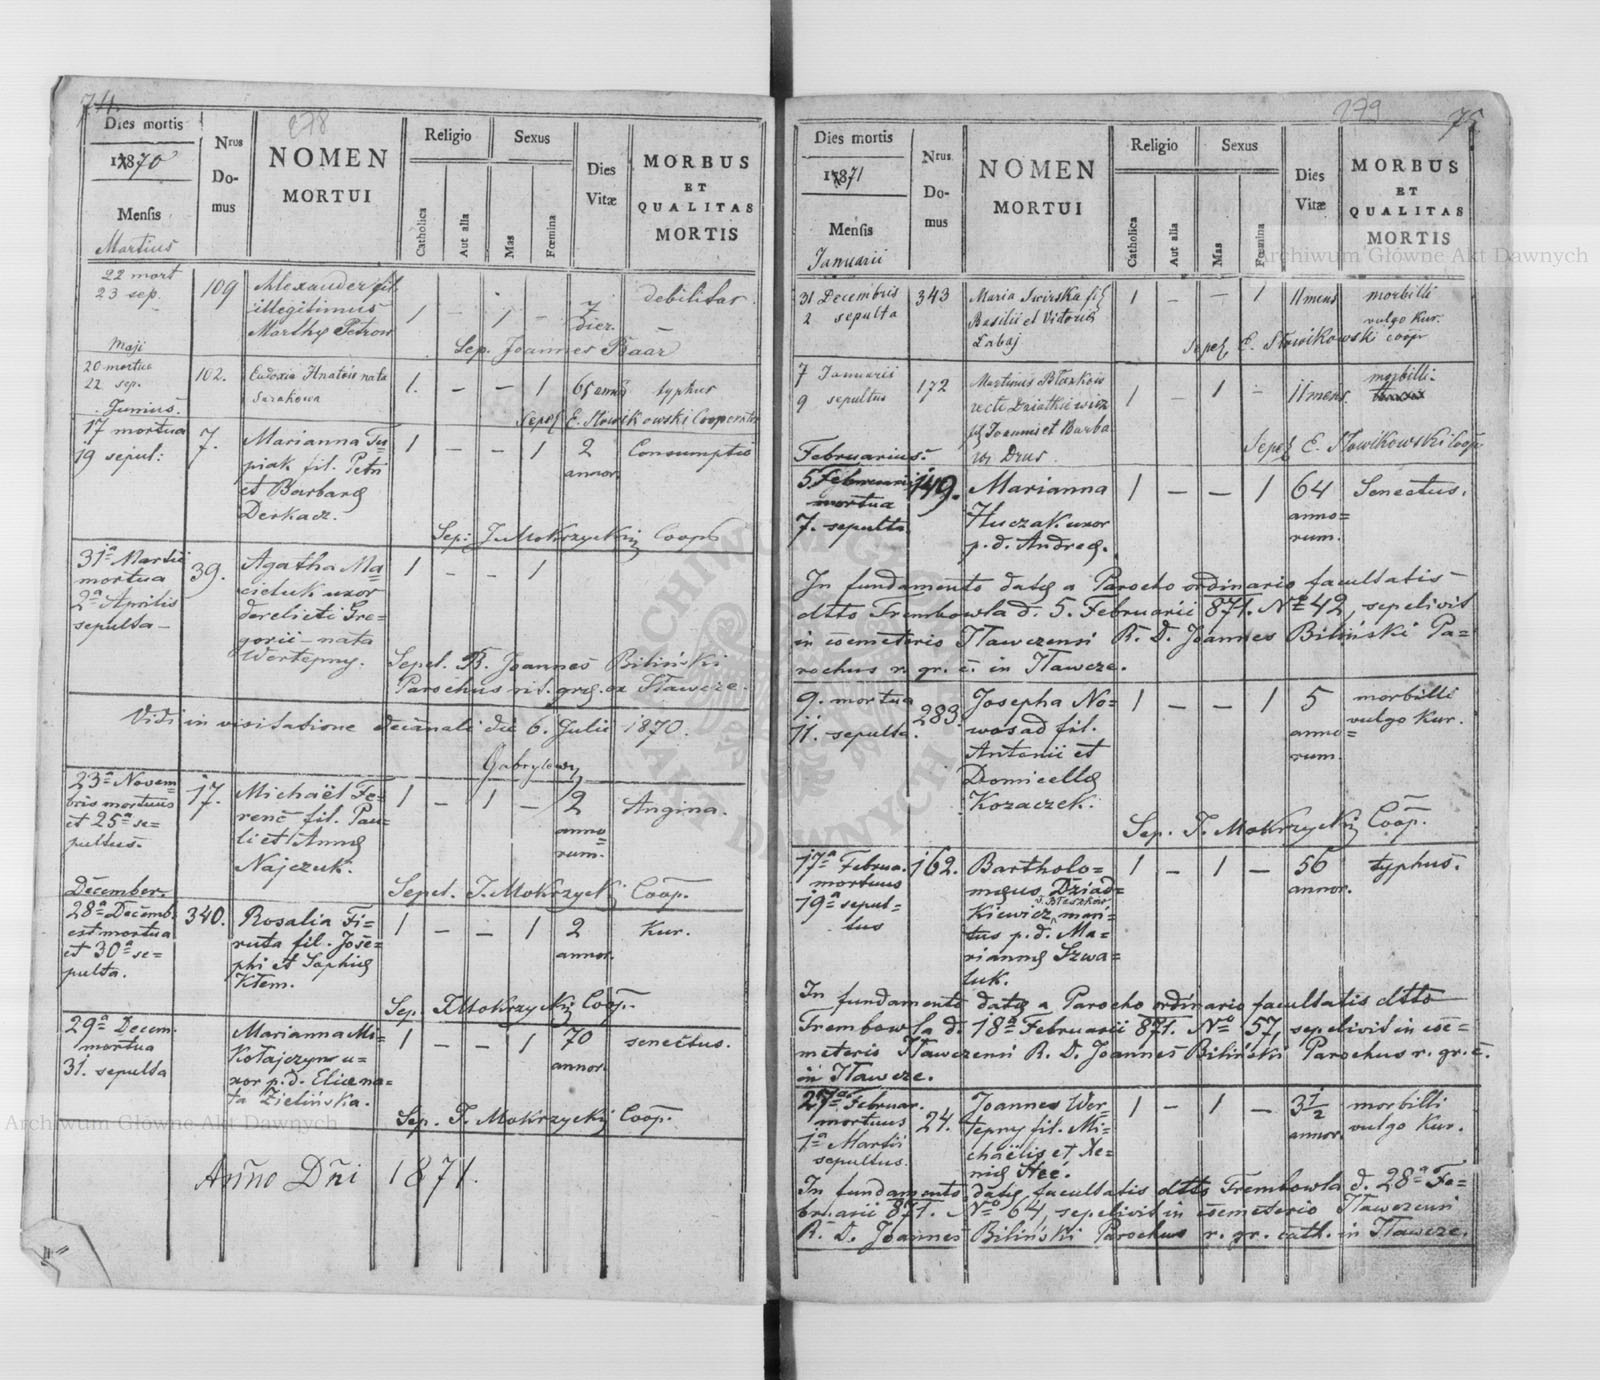 74.
278
Dies mortis
1870
Mensis
Nrus
Do-
mus
NOMEN
MORTUI
Religio
Catholica
Aut alia
Sexus
Mas
Fœmina
Dies
Vitæ
MORBUS
ET
QUALITAS
MORTIS
Martius
22 mort
23 sep.
109
Alexander fil.
illegitimus
Marthę Petron
1 - 1 -
7
dier.
debilitas
Sep. Joannes Baar
Maji
20 mortua
22 sep.
102.
Eudoxia Hnatów nata
Sarakowa
1. - - 1
65 annor
typhus
Sepel E. Słowikowski Cooperator
Junius.
17 mortua
19 sepul:
7.
Marianna Tu-
piak fil. Petri
et Barbarę
Derkacz.
1 - - 1
2
annor.
Consumptio
Sep: J. Mokrzycki Coop
31ª Martii
mortua
2ª Aprilis
sepulta-
39.
Agatha Ma-
cieluk uxor
derelicti Gre-
gorii - nata
Wertepny.
1 - - 1
Sepel. R. Joannes Biliński
Parochus rit. gręc. ex Iławcze.
Vidi in visitatione decanali die 6. Julii 1870.
23ª Novem=
bris mortuus
et 25ª se=
pultus.
17.
Michaël Fe-
renc fil. Pau-
li et Annę
Najczuk.
1 - 1 -
2
anno=
rum.
Angina.
Sepel. J. Mokrzycki Coop.
December
28ª Decemb.
est mortua
et 30ª se=
pulta.
340.
Rosalia Fi-
ruta fil. Jose-
phi et Sophię
Klem.
1 - - 1
2
annor.
Kur.
Sep. J. Mokrzycki Coop.
29ª Decem.
mortua
31. sepulta
Marianna Mi-
kołajczyn u-
xor p. d. Elię na=
ta Zielińska.
1 - - 1
70
annor.
senectus.
Sep. J. Mokrzycki Coop.
Anno Dñi 1871.
279
75
Dies mortis
1871
Mensis
Nrus
Do-
mus
NOMEN
MORTUI
Religio
Catholica
Aut alia
Sexus
Mas
Fœmina
Dies
Vitæ
MORBUS
ET
QUALITAS
MORTIS
Januarii
31 Decembris
2 sepulta
343
Maria Iwirska fil
Basilii et Victorię
Łabaj
1 - - 1
11 mens
morbilli
vulgo Kur.
Sepel E. Słowikowski coop
7 Januarii
9 sepultus
172
Martinus Błaszków
recte Dziatkiewicz
fil Joannis et Barba
rę Drus
1 - 1 -
11 mens.
morbilli.
Sepel E. Słowikowski Coop
Februarius.
5. Februarii
mortua
7. sepulta
149.
Marianna
Huczak uxor
p. d. Andreę.
1 - - 1
64
anno=
rum.
Senectus.
In fundamento datę a Parocho ordinario facultatis
dtto Trembowla d. 5. Februarii 871. Nº 42, sepelivit
in cœmeterio Iławczensi R. D. Joannes Biliński Pa=
rochus r. gr. c. in Iławcze.
9. mortua
11. sepulta.
283.
Josepha No-
wosad fil.
Antonii et
Domicellę
Kozaczek.
1 - - 1
5
anno=
rum.
morbilli
vulgo Kur.
Sep. J. Mokrzycki Coop.
17ª Februa.
mortuus
19ª sepul=
tus
162.
Bartholo=
męus Dziad=
v. Błaszków
kiewicz mari=
tus p. d. Ma=
riannę Szwa=
luk.
1 - 1 -
56
annor.
typhus.
In fundamento datę a Parocho ordinario facultatis dtto
Trembowla d. 18ª Februarii 871. Nrº 57, sepelivit in cœ=
meterio Iławczensi R. D. Joannes Biliński Parochus r. gr. c.
in Iławcze.
27ª Februar.
mortuus
1ª Martii
sepultus.
24.
Joannes Wer=
tepny fil. Mi=
chaëlis et Xe=
nię Heć.
1 - 1 -
3 1/2
annor.
morbilli
vulgo Kur.
In fundamento datę facultatis dtto Trembowla d. 28ª Fe=
bruarii 871. Nº 64, sepelivit in cœmeterio Iławczensi
R. D. Joannes Biliński Parochus r. gr. cath. in Iławcze.
Archiwum Główne Akt Dawnych
Archiwum Główne Akt Dawnych